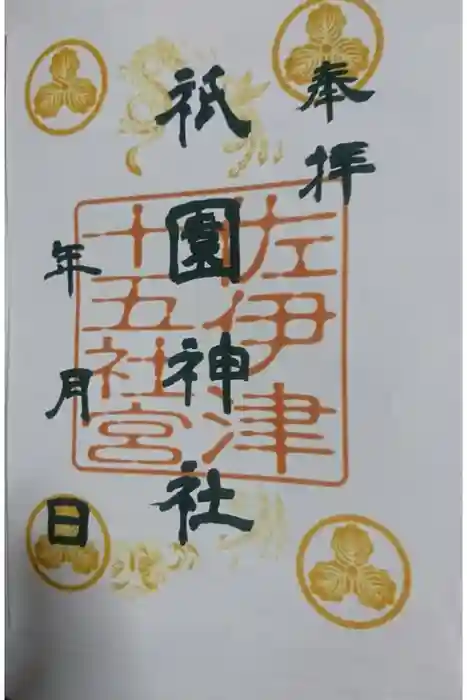 奉拝
祇園神社
年月日
佐伊津
十五社宮